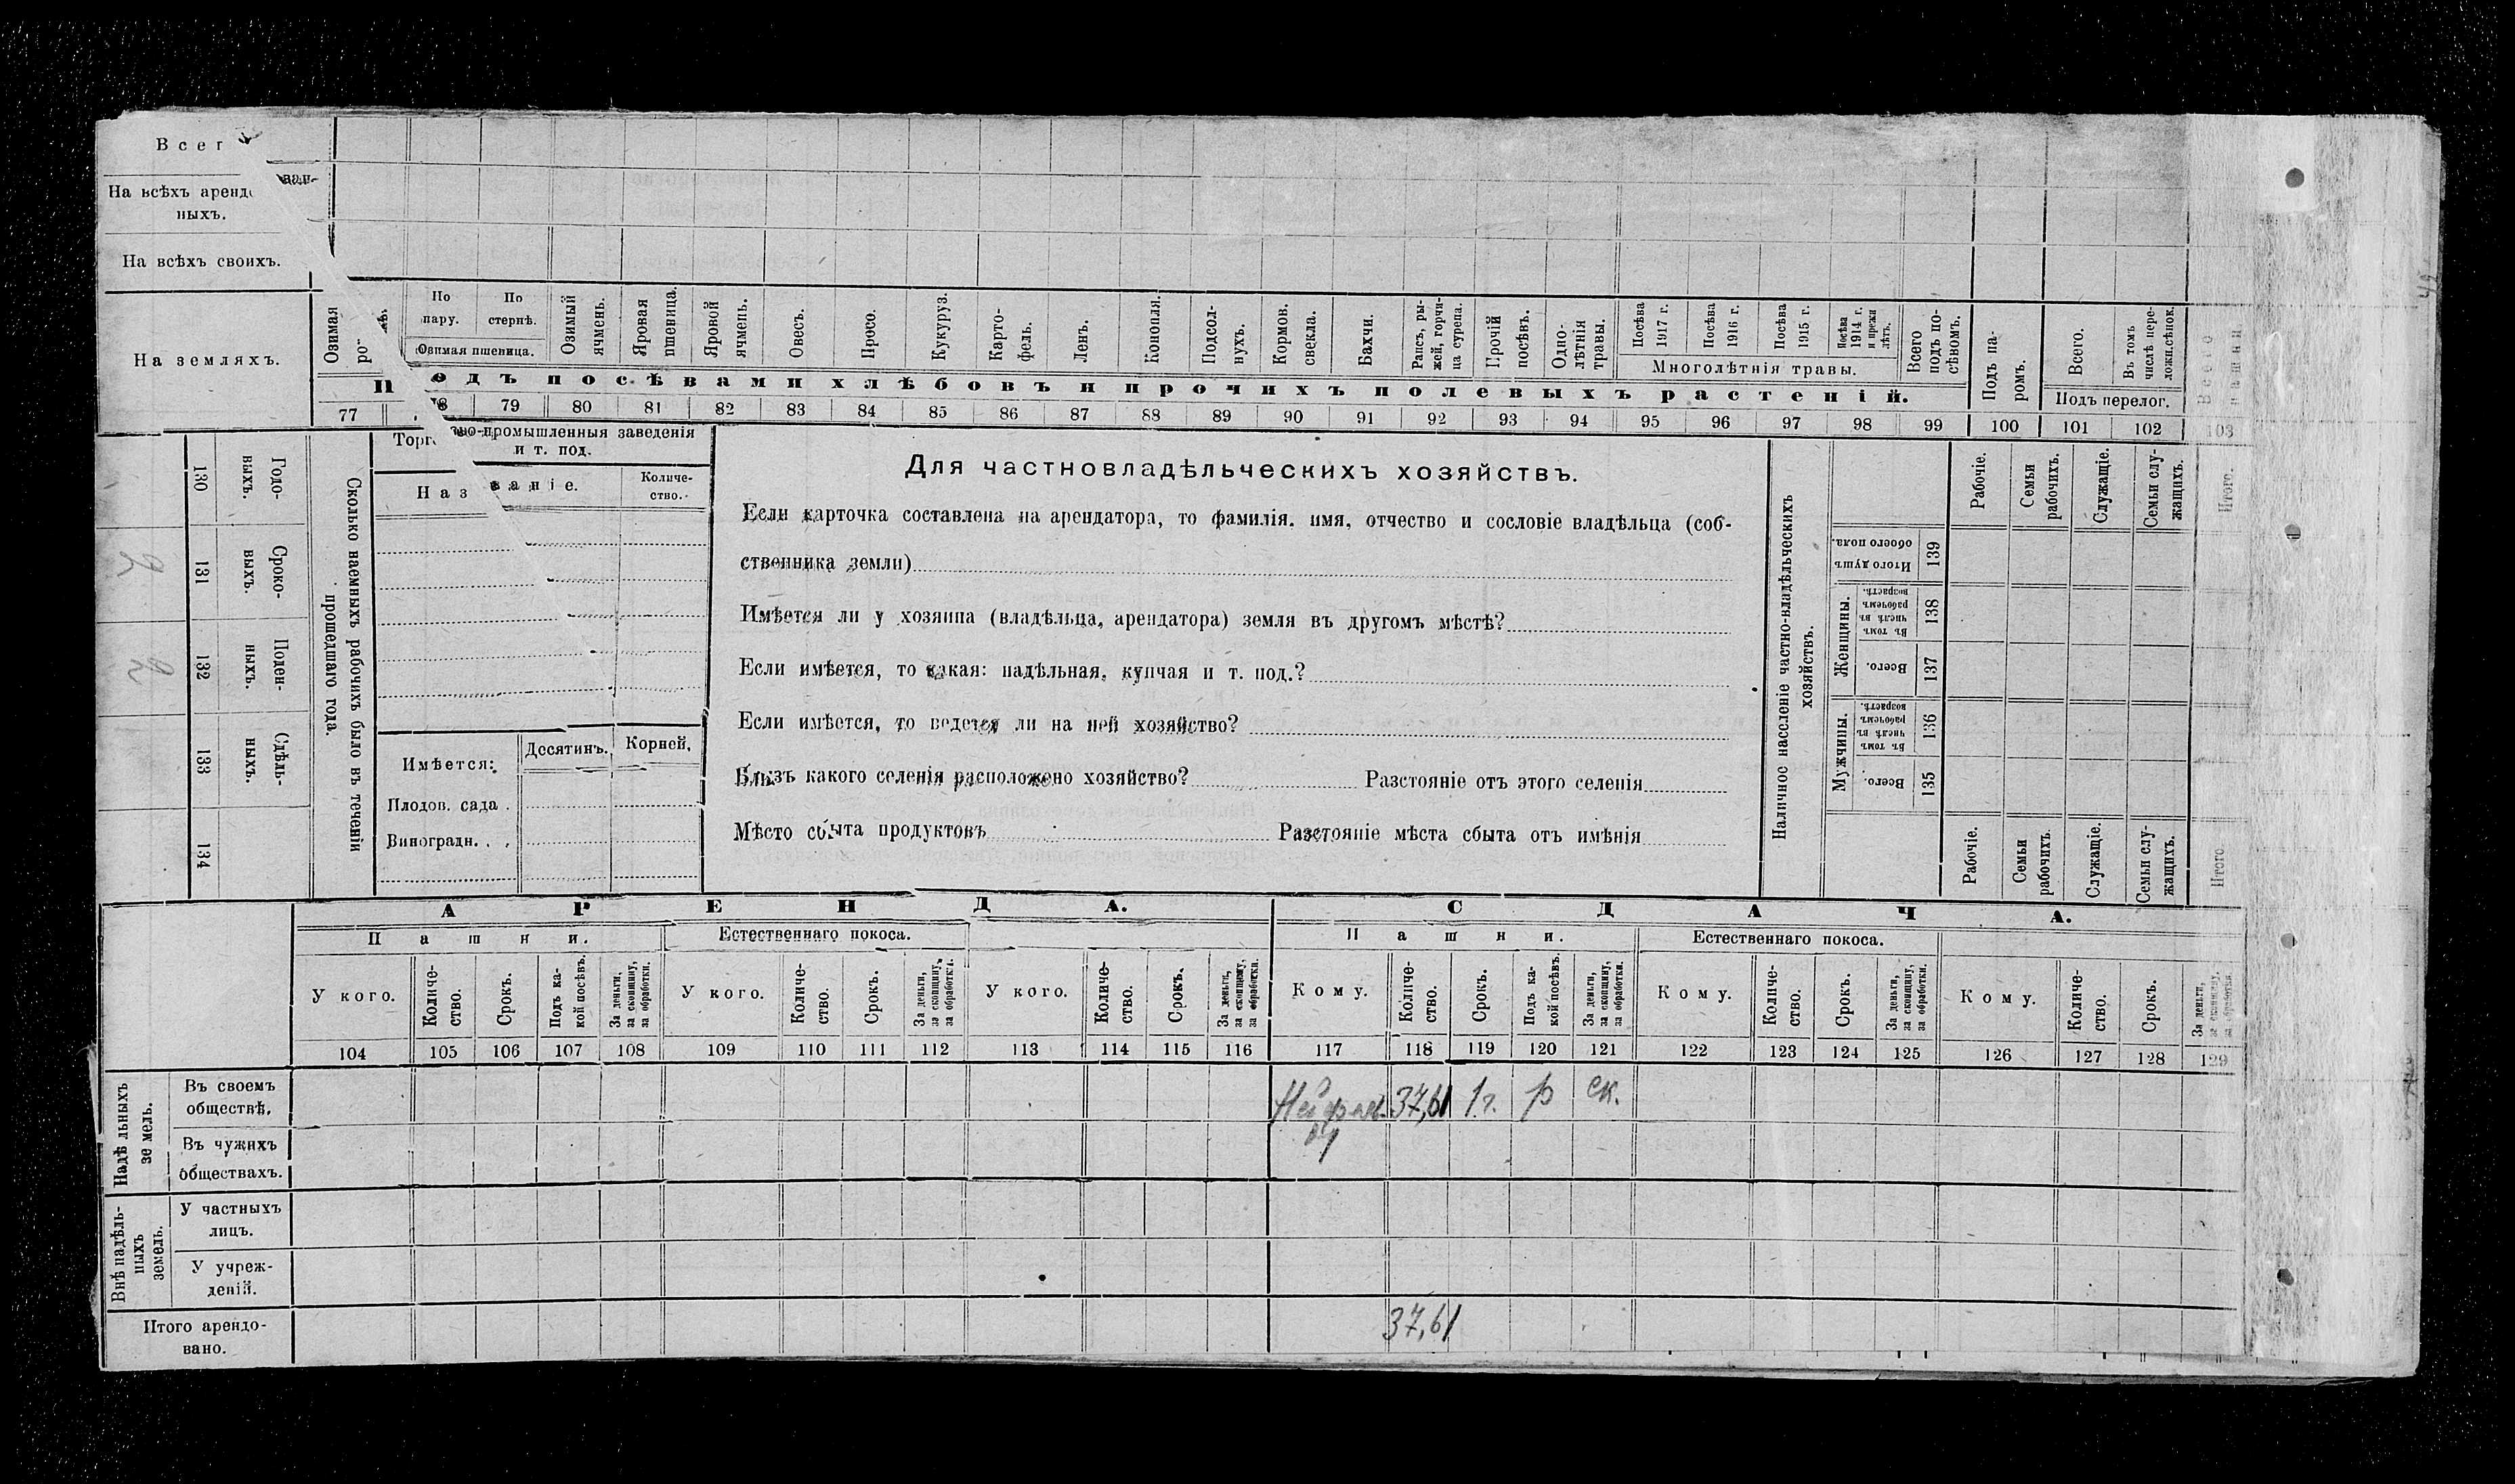 Всег
На всѣхъ аренд ван-
ныхъ.
На всѣхъ своихъ.
На земляхъ.
Озимая
По пару.
По стернѣ.
Озимая пшеница.
Озимый ячмень.
Яровая пшеница.
Яровой ячмень.
Овесъ.
Просо.
Кукуруз.
Картофель.
Ленъ.
Конопля.
Подсолнухъ.
Кормов. свекла.
Бахчи.
Рапсъ, рыжей, горчица сурепа.
Прочій посѣвъ.
Однолѣтнія травы.
Посѣва 1917 г.
Посѣва 1916 г.
Посѣва 1915 г.
Посѣва 1914 г. и прежн лѣтъ.
Многолѣтнія травы.
Всего подъ посѣвомъ.
Подъ паромъ.
Всего.
Въ томъ числѣ переложн.сѣнок.
Подъ перелог.
Всего пашни
Подъ посѣвами хлѣбовъ и прочихъ полевыхъ растеній.
77 78 79 80 81 82 83 84 85 86 87 88 89 90 91 92 93 94 95 96 97 98 99 100 101 102 103
Сколько наемныхъ рабочихъ было въ теченіи
прошедшаго года.
Годовыхъ. 130
Сроковыхъ. 131
Поденныхъ. 132
Сдѣльныхъ. 133
134
Торг во-промышленныя заведенія
и т. под.
Названіе.
Количество.
Имѣется:
Десятинъ.
Корней.
Плодов. сада .
Виноградн. . .
Для частновладѣльческихъ хозяйствъ.
Если карточка составлена на арендатора, то фамилія, имя, отчество и сословіе владѣльца (соб-
ственника земли)
Имѣется ли у хозяина (владѣльца, арендатора) земля въ другомъ мѣстѣ?
Если имѣется, то какая: надѣльная, купчая и т. под.?
Если имѣется, то ведется ли на ней хозяйство?
Близъ какого селенія расположено хозяйство? Разстояніе отъ этого селенія
Мѣсто сбыта продуктовъ Разстояніе мѣста сбыта отъ имѣнія
Наличное населеніе частно-владѣльческихъ
хозяйствъ.
Рабочіе.
Семьи рабочихъ.
Служащіе.
Семьи служащихъ.
Итого.
Итого душъ обоего пола. 139
Женщины.
Въ томъ числѣ въ рабочемъ возрастѣ. 138
Всего. 137
Мужчины.
Въ томъ числѣ въ рабочемъ возрастѣ. 136
Всего. 135
Рабочіе.
Семьи рабочихъ.
Служащіе.
Семьи служащихъ.
Итого
АРЕНДА. СДАЧА.
Пашни. Естественнаго покоса. Пашни. Естественнаго покоса.
У кого. Количество. Срокъ. Подъ какой посѣвъ. За деньги, за скопщину, за обработки.
У кого. Количество. Срокъ. За деньги, за скопщину, за обработки.
У кого. Количество. Срокъ. За деньги, за скопщину, за обработки.
Кому. Количество. Срокъ. Подъ какой посѣвъ. За деньги, за скопщину, за обработки.
Кому. Количество. Срокъ. За деньги, за скопщину, за обработки.
Кому. Количество. Срокъ. За деньги, за скопщину, за обработки.
104 105 106 107 108 109 110 111 112 113 114 115 116 117 118 119 120 121 122 123 124 125 126 127 128 129
Надѣльныхъ земель.
Въ своемъ
обществѣ.
37,61 1 г. р ск.
Въ чужихъ
обществахъ.
Внѣ надѣльныхъ земель.
У частныхъ
лицъ.
У учреж-
деній.
Итого арендо-
вано.
37,61